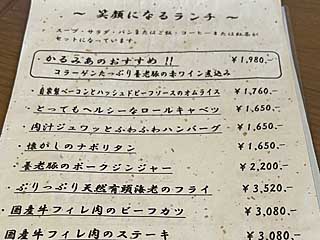 ～ 笑顔になるランチ ～
スープ・サラダ・パンまたはご飯・コーヒーまたは紅茶が
セットになっています。
・かるみあのおすすめ!! ¥1,980.-
コラーゲンたっぷり養老豚の赤ワイン煮込み
・自家製ベーコンとハッシュドビーフソースのオムライス ¥1,760.-
・とってもヘルシーなロールキャベツ ¥1,650.-
・肉汁ジュワッとふわふわハンバーグ ¥1,650.-
・懐かしのナポリタン ¥1,650.-
・養老豚のポークジンジャー ¥2,200.-
・ぷりっぷり天然有頭海老のフライ ¥3,520.-
・国産牛フィレ肉のビーフカツ ¥3,080.-
・国産牛フィレ肉のステーキ ¥3,080.-